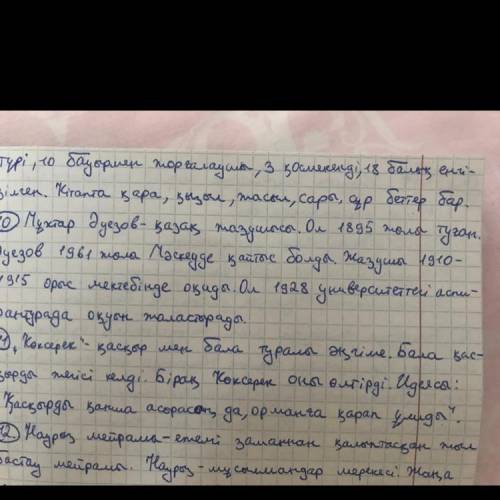 түрі, 10 бауырмен жорғалаушы, 3 қосмекенді, 18 балық енгі-
зілген. Кітапта қара, қызыл, жасыл, сары, сұр беттер бар.
10 Мұхтар Әуезов - қазақ жазушысы. Ол 1895 жылы туған.
Әуезов 1961 жылы Мәскеуде қайтыс болды. Жазушы 1910-
1915 орыс мектебінде оқиды. Ол 1928 университеттегі аспи-
рантурада оқуын жаластырады.
11 "Көксерек" - қасқыр мен бала туралы әңгіме. Бала қас-
қырды жегісі келді. Бірақ Көксерек оны өлтірді. Идеясы:
"Қасқырды қанша асырасаң да, орманға қарап ұлиды".
12 Наурыз мейрамы - ежелгі заманнан қалыптасқан жыл
бастау мейрамы. Наурыз - мұсылмандар мерекесі. Жаңа